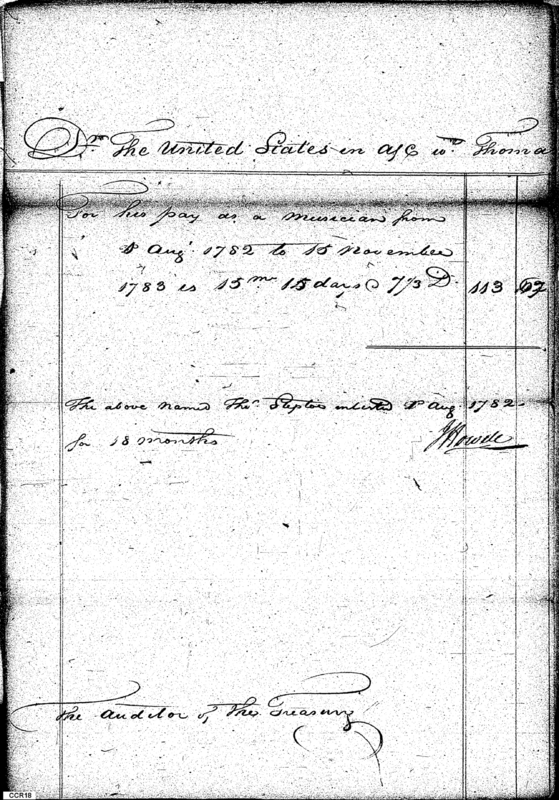 Dr. The United States in A/C wth Thoma
For his pay as a Musician from
1st Augt. 1782 to 15 November
1783 is 15 ms 15 days @ 7 1/3 D. 113 67
The above named Thos. Steptoe inlisted 1st Aug 1782
for 18 months
J Howell
The Auditor of the Treasury
CCR18